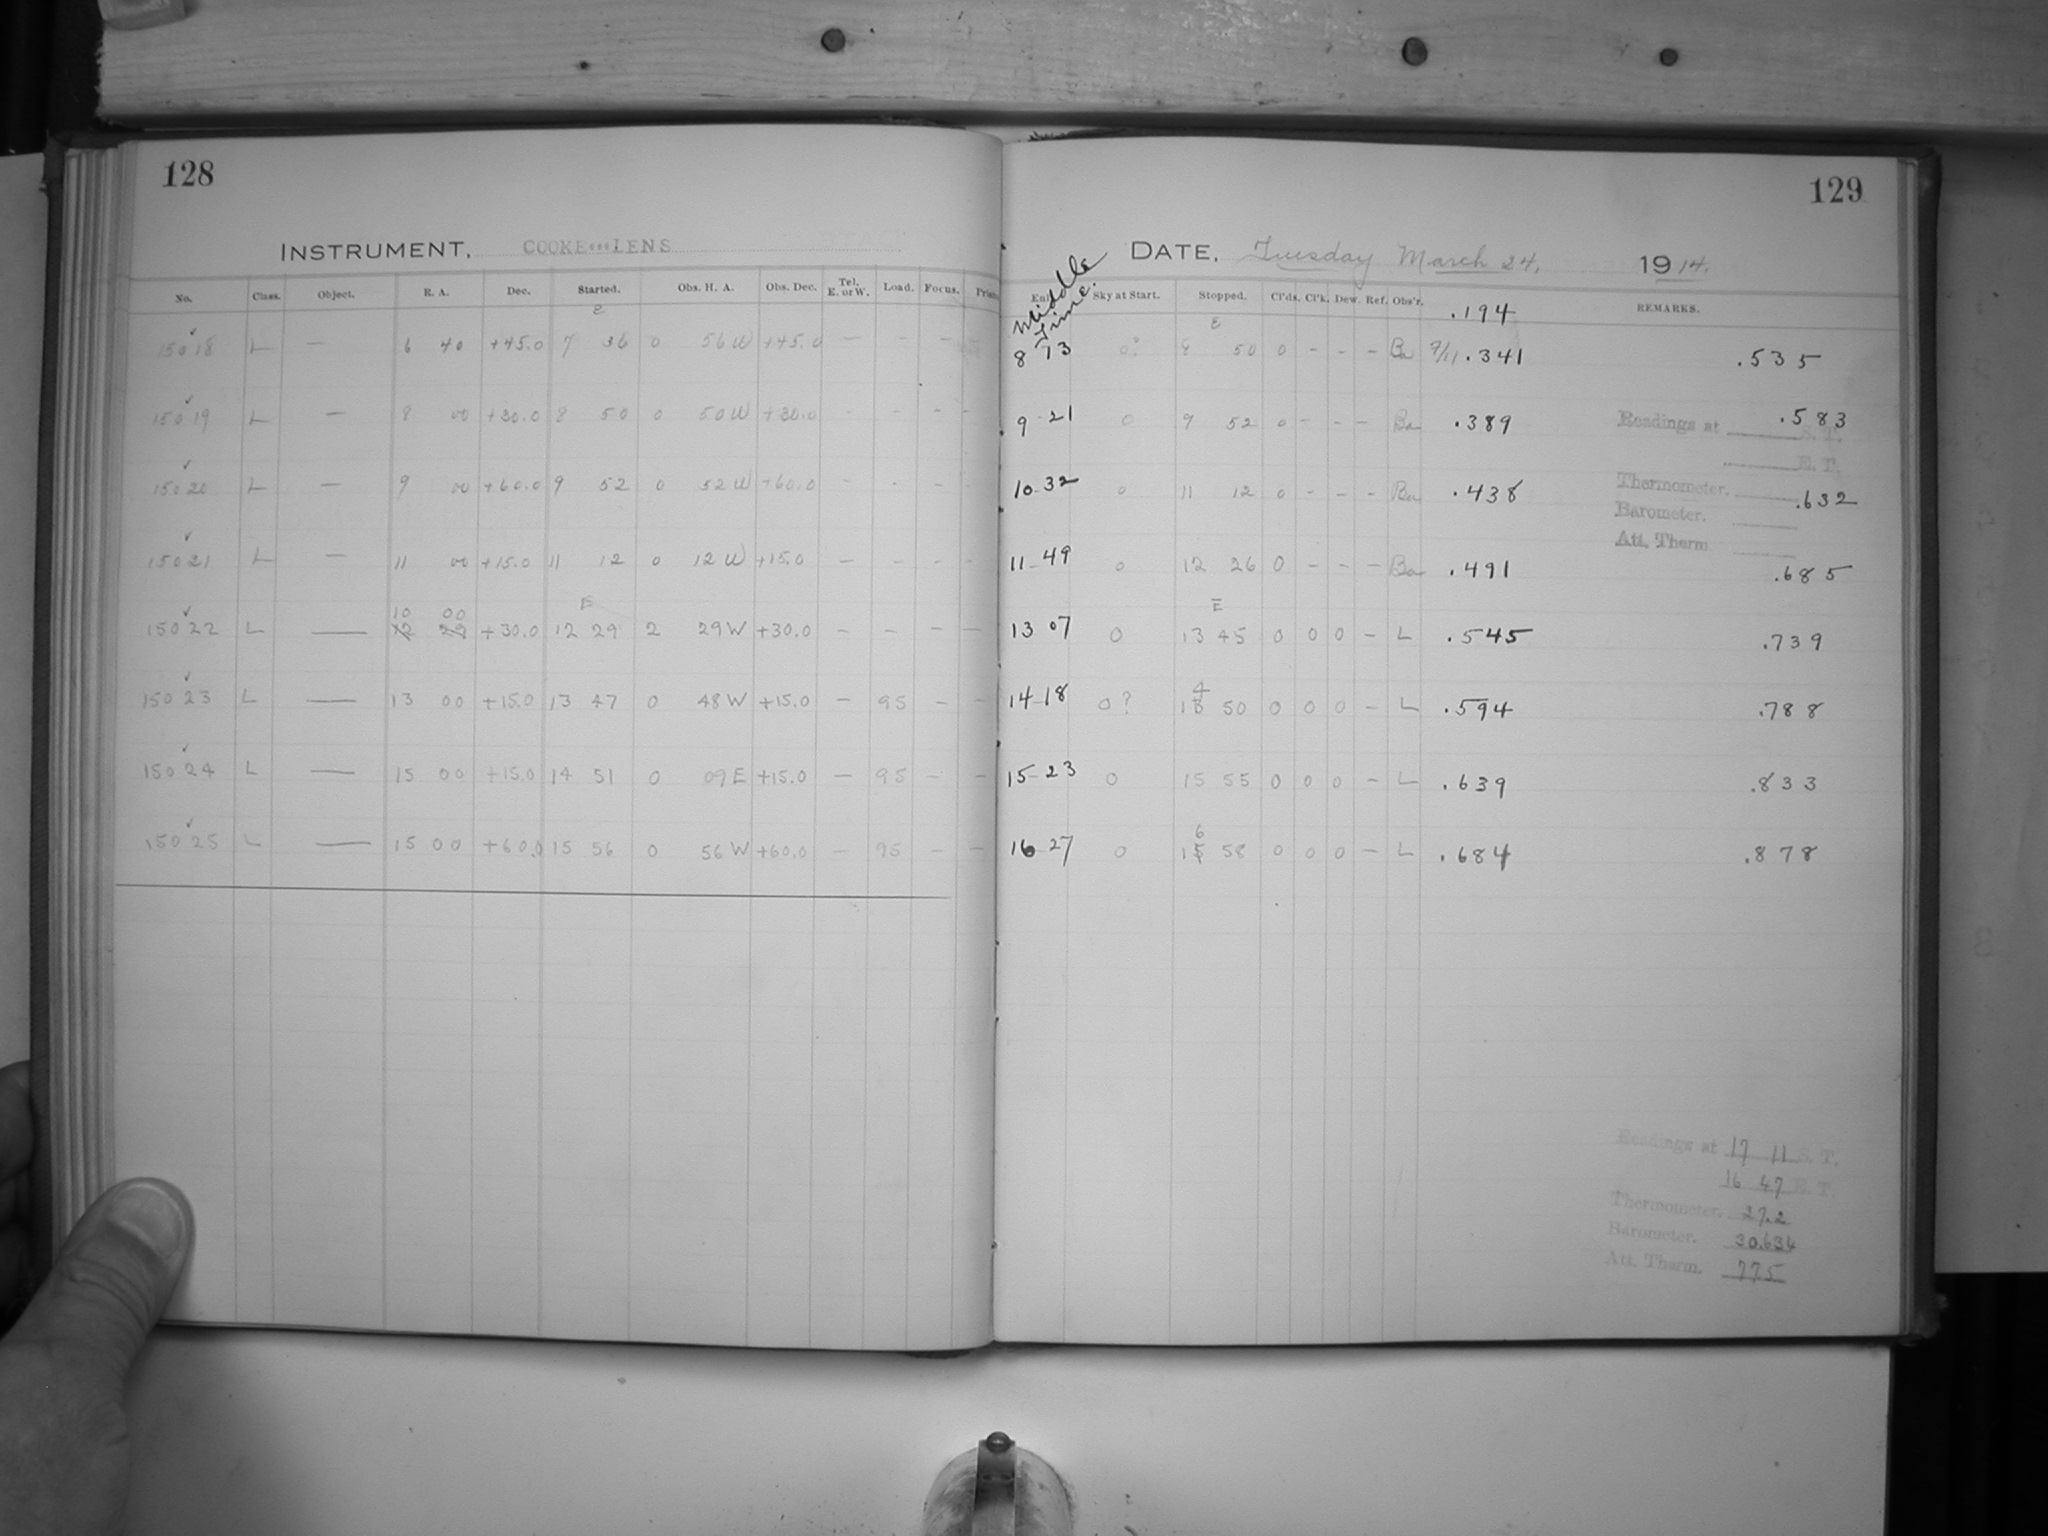 128
INSTRUMENT. COOKE LENS
No. Class. Object. R. A. Dec. Started. Obs. H. A. Obs. Dec. Tel. E. or W. Load. Focus.
15018 L — 6 40 +45.0 7 36 0 56 W +45.0 — - -
15019 L — 8 00 +30.0 8 50 0 50 W +30.0 - - - -
15020 L — 9 00 +60.0 9 52 0 52 W +60.0 - - - -
15021 L — 11 00 +15.0 11 12 0 12 W +15.0 — - - -
10 00 E
15022 L — 12 29 +30.0 12 29 2 29 W +30.0 - - - -
15023 L — 13 00 +15.0 13 47 0 48 W +15.0 — 95 - -
15024 L — 15 00 +15.0 14 51 0 09 E +15.0 — 95 - -
15025 L — 15 00 +60.0 15 56 0 56 W +60.0 — 95 - -
129
DATE. Tuesday March 24, 1914.
Middle Time.
Sky at Start. Stopped. Cl'ds. Cl'k. Dew. Ref. Obs'r. REMARKS.
.194
E
8 13 0? 8 50 0 - - - Ba 7/11 .341 .535
9-21 0 9 52 0 - - - Ba .389 .583
Readings at S. T.
E. T.
10-32 0 11 12 0 - - - Ba .438 .632
Thermometer.
Barometer.
Att. Therm
11-49 0 12 26 0 - - - Ba .491 .685
E
13 07 0 13 45 0 0 0 - L .545 .739
4
14-18 0? 15 50 0 0 0 - L .594 .788
15-23 0 15 55 0 0 0 - L .639 .833
6
16-27 0 15 58 0 0 0 - L .684 .878
Readings at 17 11 S. T.
16 47 E. T.
Thermometer. 27.2
Barometer. 30.634
Att. Therm. 77.5